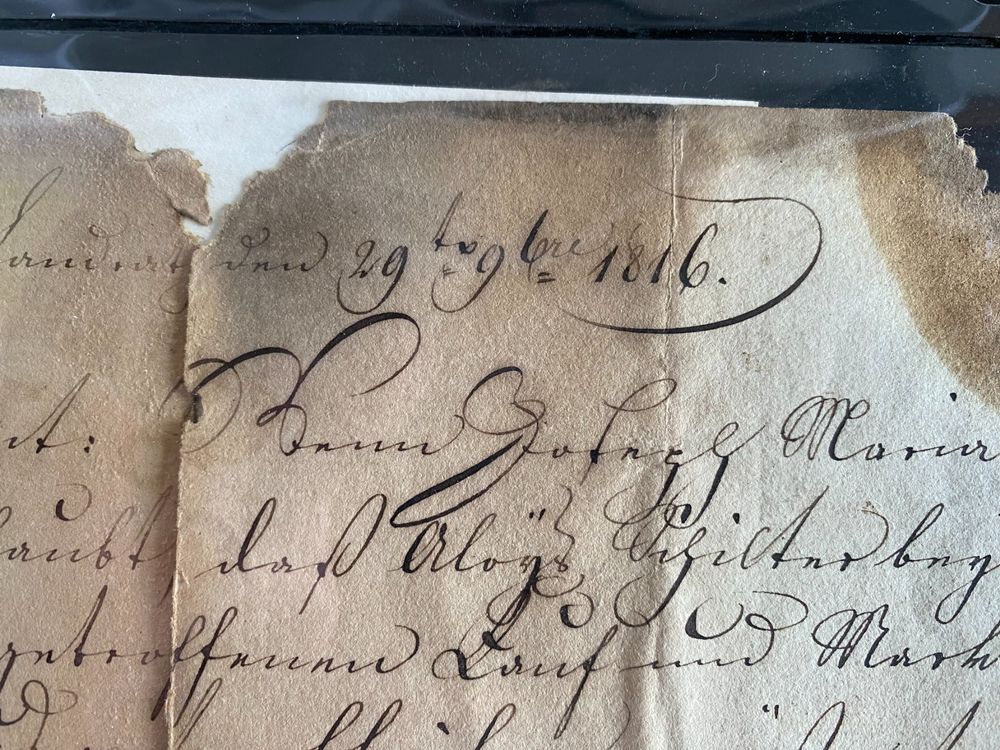 Landrat den 29ten 9bre 1816.
nt: Wenn Joseph Maria
laubt, daß Aloÿs Schilter bey
getroffenen Kauf und Mark